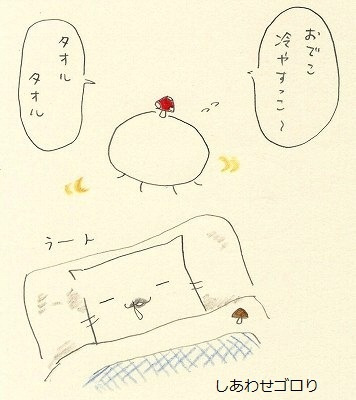 おでこ
冷やすっこ〜
タオル
タオル
うート
しあわせゴロリ